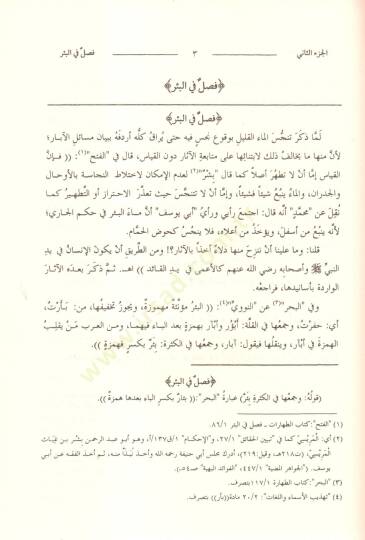 الجزء الثاني ٣ فصل في البئر
﴿فصلٌ في البئر﴾
﴿فصلٌ في البئر﴾
لَمَّا ذكَرَ تنجُّسَ الماء القليل بوقوع نجسٍ فيه حتى يُراقُ كلُّه أردفَهُ ببيان مسائلِ الآبار؛
لأنَّ منها ما يخالفُ ذلك لابتنائِها على متابعةِ الآثار دون القياس، قال في "الفتح"(١): (( فإنَّ
القياس إمَّا أنْ لا تَطهُرَ أصلاً كما قال "بِشْرٌ"(٢) لعدم الإمكان لاختلاط النجاسة بالأوحال
والجدران، والماءُ ينبُعُ شيئاً فشيئاً، وإمَّا أنْ لا تتنجَّسَ حيث تعذَّرَ الاحترازُ أو التطهيرُ كما
نُقِلَ عن "محمَّدٍ" أنَّه قال: اجتمعَ رأيي ورأيُ "أبي يوسف" أنَّ ماءَ البئر في حكمِ الجاري؛
لأنَّه ينبُعُ من أسفلَ، ويؤخَذُ من أعلاه، فلا ينجُسُ كحوضِ الحمَّام.
قلنا: وما علينا أنْ ننزحَ منها دلاءً أخذاً بالآثار؟! ومن الطَّريقِ أنْ يكونَ الإنسانُ في يدِ
النبيِّ ﷺ وأصحابِه رضي الله عنهم كالأعمى في يدِ القائد )) اهـ. ثُمَّ ذكَرَ بعدَه الآثارَ
الواردة بأسانيدها، فراجعه.
وفي "البحر"(٣) عن "النوويِّ"(٤): (( البئرُ مؤنَّثةٌ مهموزةٌ، ويجوزُ تخفيفُها، من: بَأَرْتُ،
أي: حفرْتُ، وجمعُها في القلَّة: أَبْؤُر وأَبْآر بهمزةٍ بعد الباء فيهما، ومن العرب مَنْ يقلِبُ
الهمزةَ في أَبْآر، وينقلُها فيقول: آبار، وجمعُها في الكثرة: بِئَارٌ بكسرِ فهمزةٍ )).
﴿فصلٌ في البئر﴾
(قولُهُ: وجمعُها في الكثرةِ بِئَارٌ) عبارةُ "البحر": (( بِئَارٌ بكسرِ الباء بعدها همزةٌ )).
(١) "الفتح": كتاب الطهارات ـ فصل في البئر ٨٦/١.
(٢) أي: المَرِيْسيّ كما في "تبيين الحقائق" ٢٧/١، و"الإحكام" ١/ق١٣٧/أ، وهو أبو عبد الرحمن بشر بن غِيَاث
المَرِيْسيّ، (ت٢١٨هـ، وقيل:٢١٩)، أدرك مجلس أبي حنيفة رحمه الله وأخذ نُبذاً منه، ثم أخذ الفقه عن أبي
يوسف. ("الجواهر المضية" ٤٤٧/١، "الفوائد البهية" صـ٥٤ـ).
(٣) "البحر": كتاب الطهارة ١١٧/١ بتصرف.
(٤) "تهذيب الأسماء واللغات": ٢٠/٢ مادة((بأر)) بتصرف.